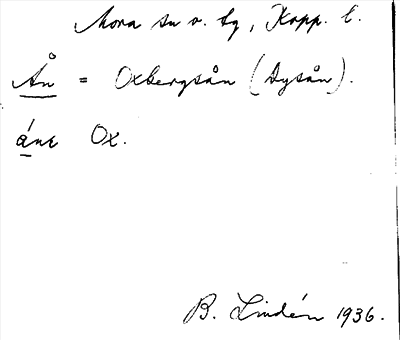 Mora sn o. tg, Kopp. l.
Ån = Oxbergsån (Dysån).
áne Ox.
B. Lindén 1936.